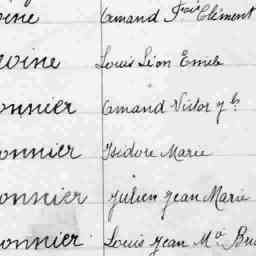 oine Amand Fois Clément
evoine Louis Léon Emile
onnier Amand Victor
onnier Isidore Marie
onnier Julien Jean Marie
onnier Louis Jean Mie